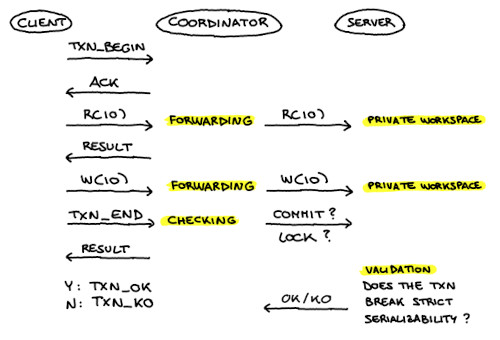 CLIENT COORDINATOR SERVER
TXN_BEGIN
ACK
R(10) FORWARDING R(10) PRIVATE WORKSPACE
RESULT
W(10) FORWARDING W(10) PRIVATE WORKSPACE
TXN_END CHECKING COMMIT?
LOCK?
RESULT
VALIDATION
Y: TXN_OK DOES THE TXN
N: TXN_KO OK/KO BREAK STRICT
SERIALIZABILITY?